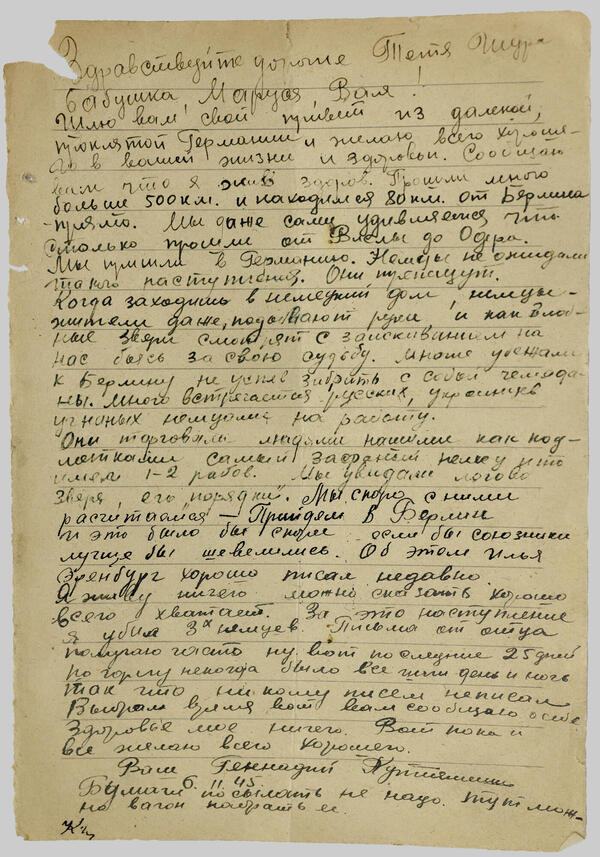 Здравствуйте дорогие Тетя Шура
Бабушка, Маруся, Валя!
Шлю вам, свой привет из далекой,
проклятой Германии и желаю всего хороше-
го в вашей жизни и здоровьи. Сообщаю
вам что я жив здоров. Прошли много
больше 500 км. и находимся 80 км. от Берлина
прямо. Мы даже сами удивляемся что
столько прошли от Вислы до Одера.
Мы пришли в Германию. Немцы не ожидали
такого наступления. Они трепещут.
Когда заходишь в немецкий дом, немцы-
жители даже, подымают руки и как
звери смотрят с заискиванием на
нас боясь за свою судьбу. Многие убежали
к Берлину не успев забрать с собой чемода-
ны. Много встречается русских, украинцев
угнаных немцами на работу.
Они торговали людями нашими как под-
метками самый немец и то
имел 1-2 рабов. Мы увидали логово
зверя, его порядки. Мы скоро с ними
расчитаемся – Прийдем в Берлин
и это было бы скоро если бы союзники
лучше бы шевелились. Об этом Илья
Эренбург хорошо писал недавно.
Я живу ничего можно сказать хорошо
всего хватает. За это наступление
я убил 3х немцев. Письма от отца
получаю часто ну вот последние 25 дней
по горлу некогда было все шли день и ночь
так что никому писем неписал
Выбрал время вот вам сообщаю о себе
Здоровье мое ничего. Вот пока и
все желаю всего хорошего.
Ваш Геннадий
6. II 45.
Бумаги посылать не надо. Тут мож-
но вагон набрать ее.